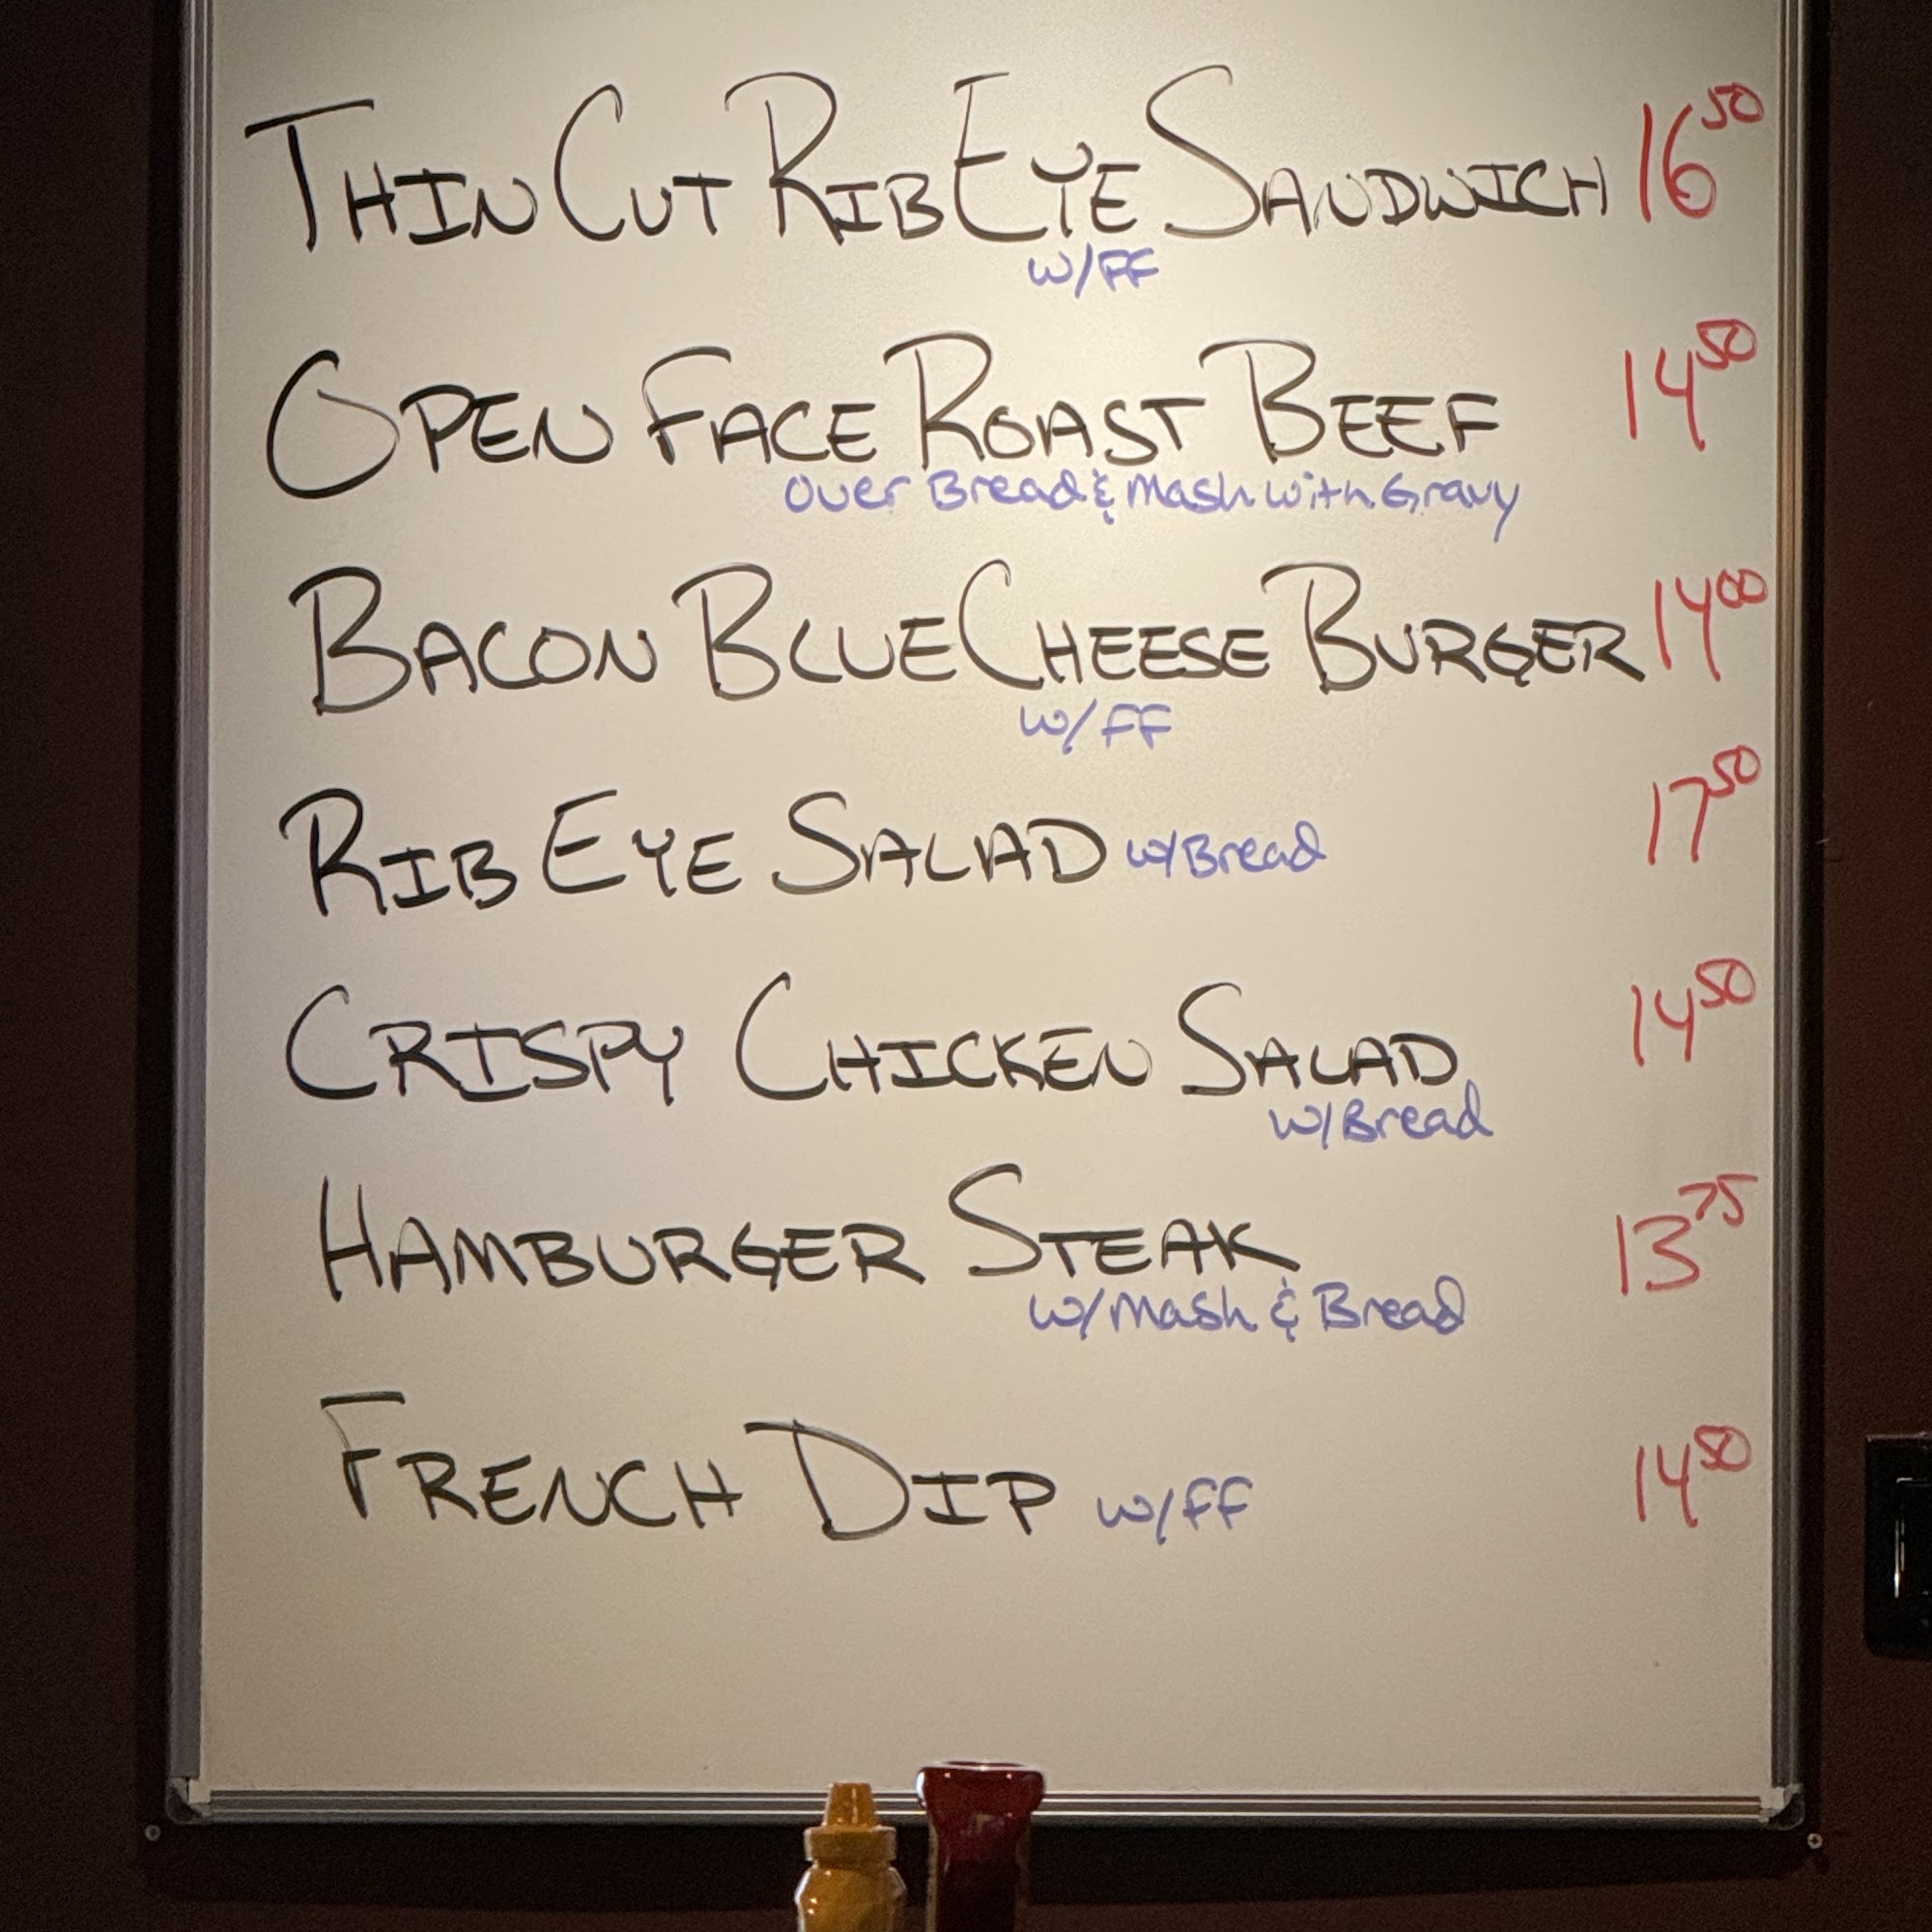 THIN CUT RIB EYE SANDWICH 16 50
w/FF
OPEN FACE ROAST BEEF 14 50
Over Bread & Mash With Gravy
BACON BLUE CHEESE BURGER 14 00
w/FF
RIB EYE SALAD w/Bread 17 50
CRISPY CHICKEN SALAD 14 50
w/Bread
HAMBURGER STEAK 13 75
w/Mash & Bread
FRENCH DIP w/FF 14 50